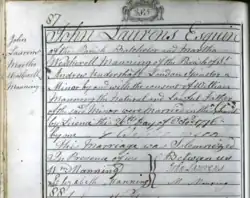 87
John Laurens Esquire
of the Parish Batchelor and Martha
Manning of the Parish of St
Andrew Undershaft London Spinster a
Minor by and with the consent of William
Manning the Natural and Lawful Father
of the said Minor were Married in this Church
by License this 26th Day of October 1776
by me
This Marriage was Solemnized
In Presence of us Between us
Wm Manning Jn Laurens
Elizabeth Manning M. Manning
88
John
Laurens
Martha
Manning